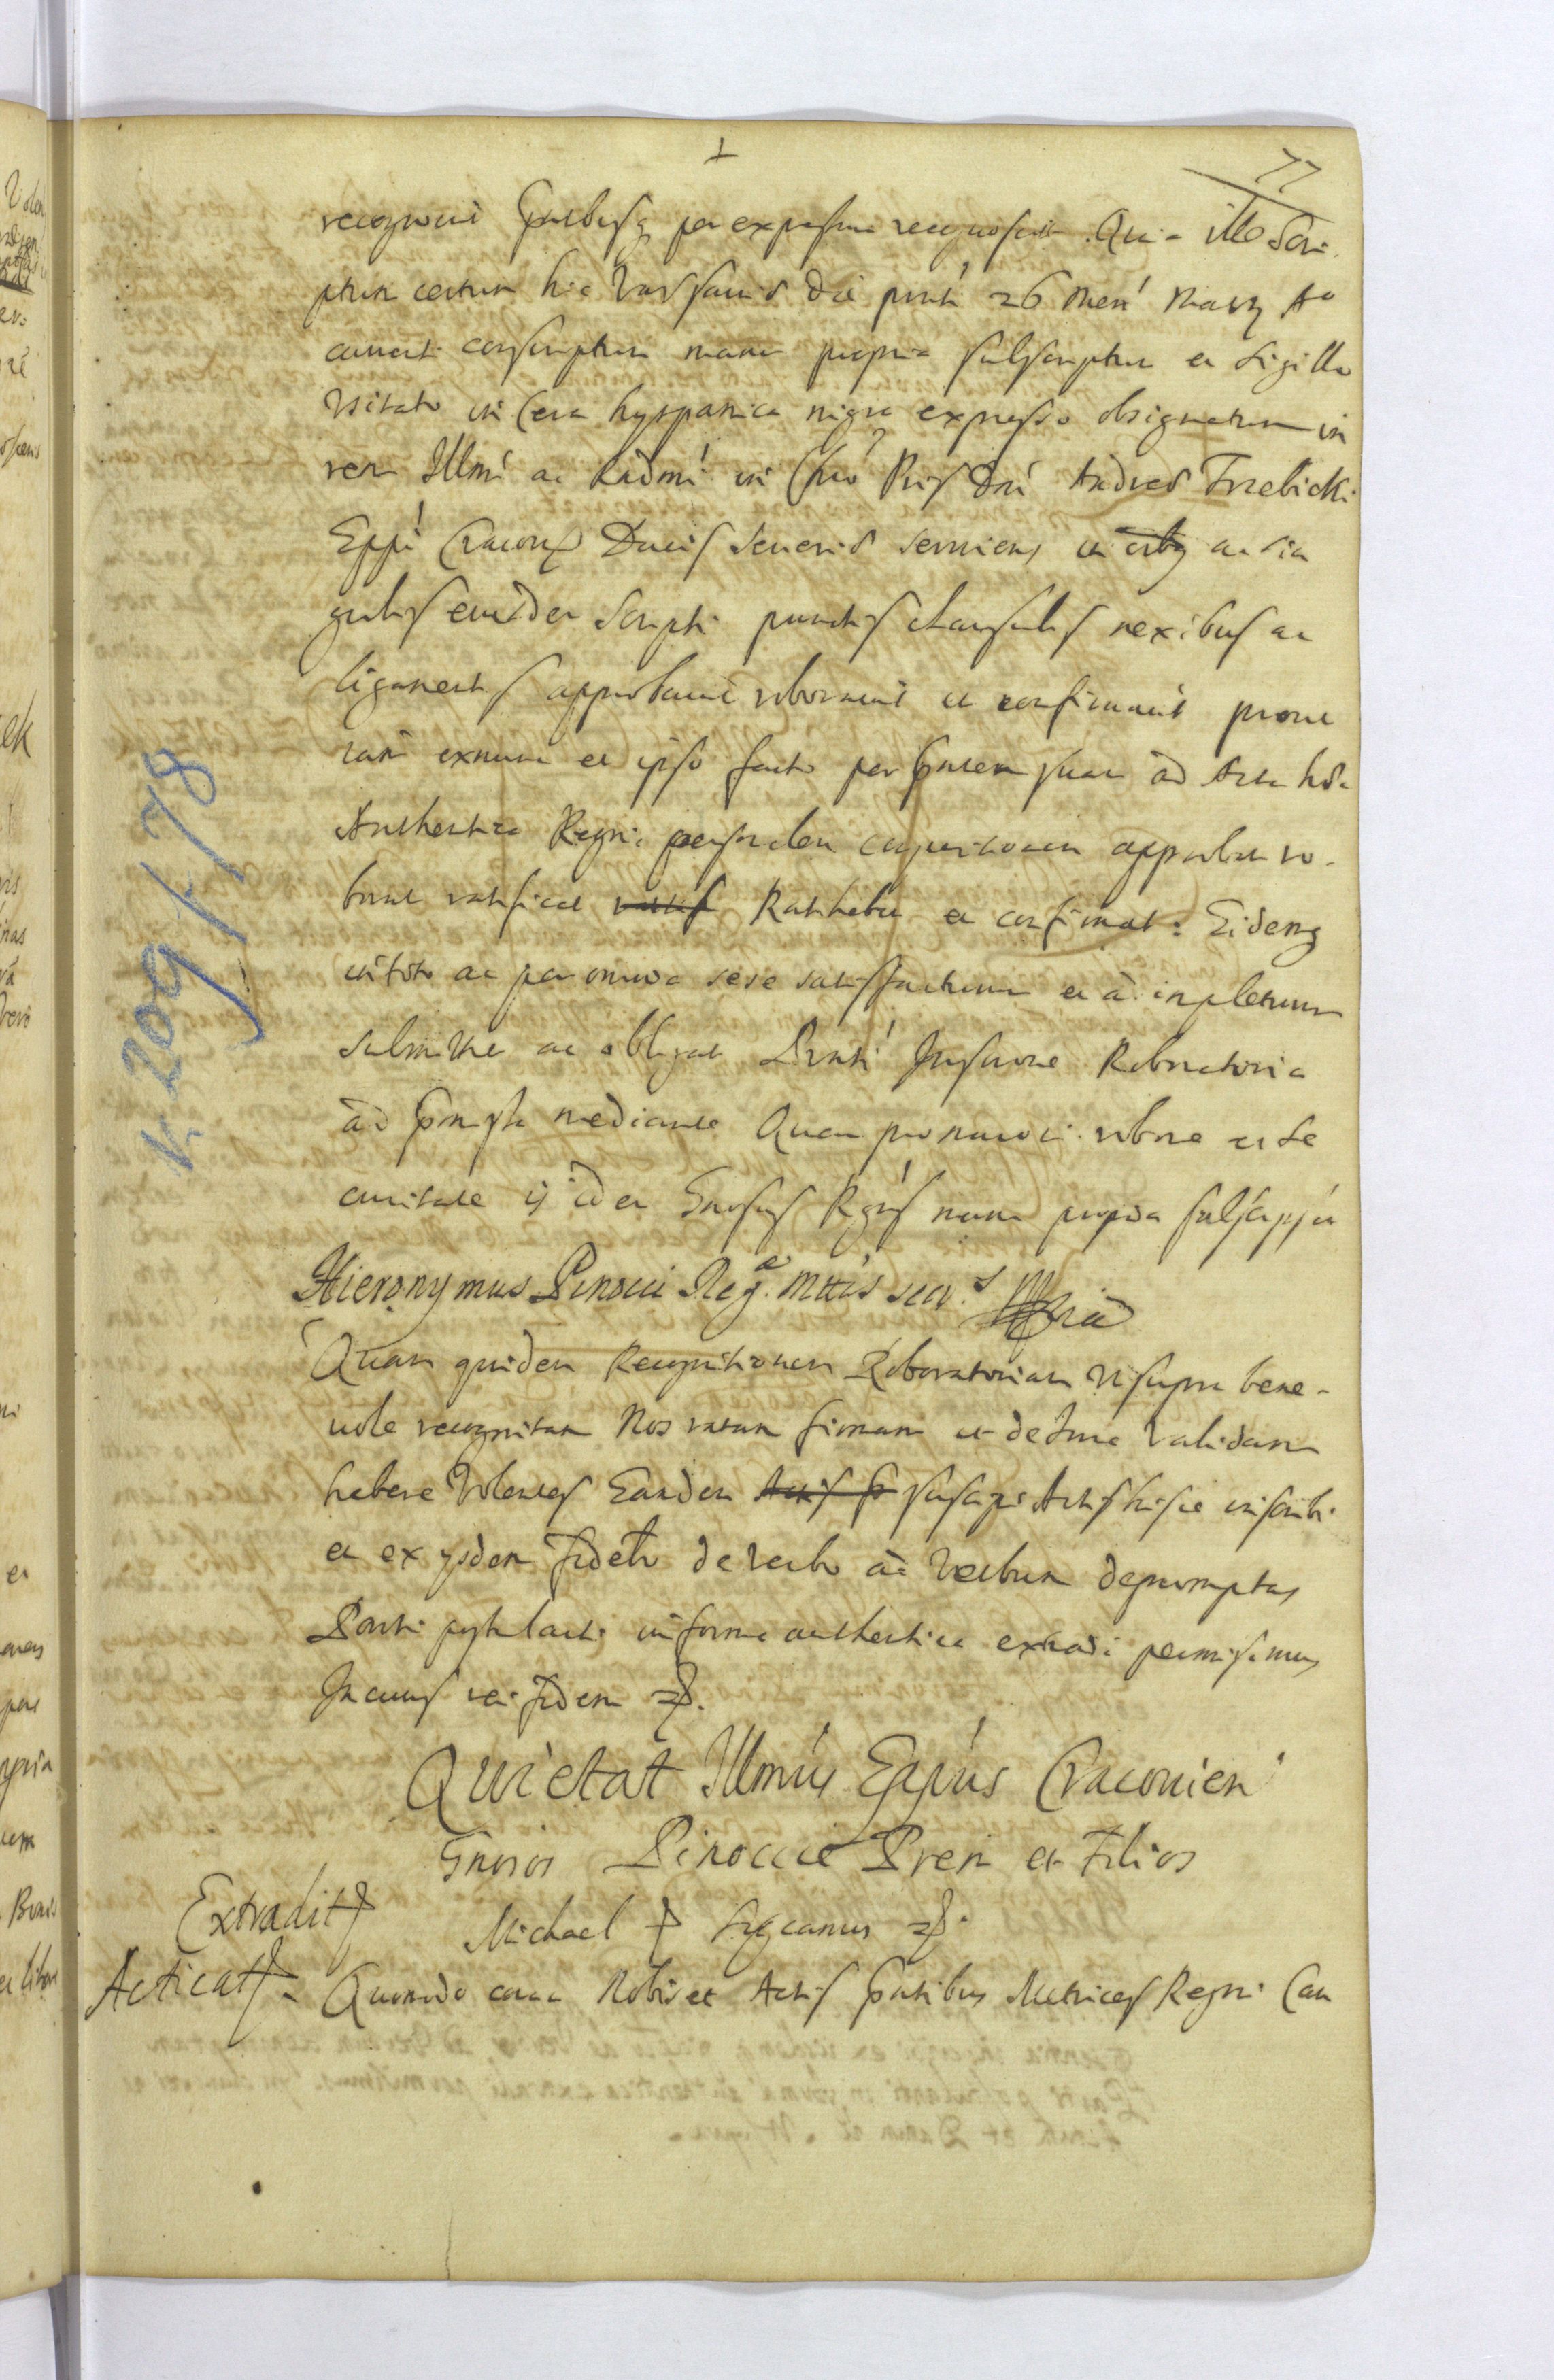 77
recognovit Pntibusq per expressum recognoscit. Quia ille Scri-
ptum certum hic Varsaviae die pnti 26 Men Marty Ao
currenti conscriptum manu propria subscriptum et Sigillo
Usitato in Cera hyspanica nigra expresso obsignatum in
rem Illmi ac Rndmi in Chro Pris Dni Andreae Trzebicki
Eppi Cracoviens Ducis Severiae serviens in oibq ac sin
gulis eiusdem Scripti punctis clausulis nexibus ac
ligamentis approbavit roboravit et confirmavit prout
iam exnunc et ipso facto per Pntem suam ad Acta hac
Authentica Regni personalem comparitionem approbat ro-
borat ratificat Ratihabet et confirmat: Eidemq
in toto ac per omnia sese satisfacturum et adimpleturum
submittit ac obligat Pnti Inscriptione Roboratoria
ad Pmissa mediante Quam pro maiori robore et se
curitate ijdem Gnosus Rgns manu propria subscripsit
Hieronymus Pinocci Reg. Mttis secr. Mpria
Quam quidem Recognitionem Roboratoriam Ut supra bene-
vole recognitam Nos ratam firmam et de Iure Validam
habere Volentes Eandem Actis P suscipi Actis hisce inscribi
et ex ysdem fidelr de Verbo ad Verbum depromptas
Parti postulanti in forma authentica extradi permisimus
In cuius rei fidem
Quietat Illmus Eppus Cracovien
Gnosos Pinoccie Prem et Filios
Extradit Michael
Acticat. Quomodo coram Nobis et Actis Pntibus Metrices Regni Can
K 209 f 78